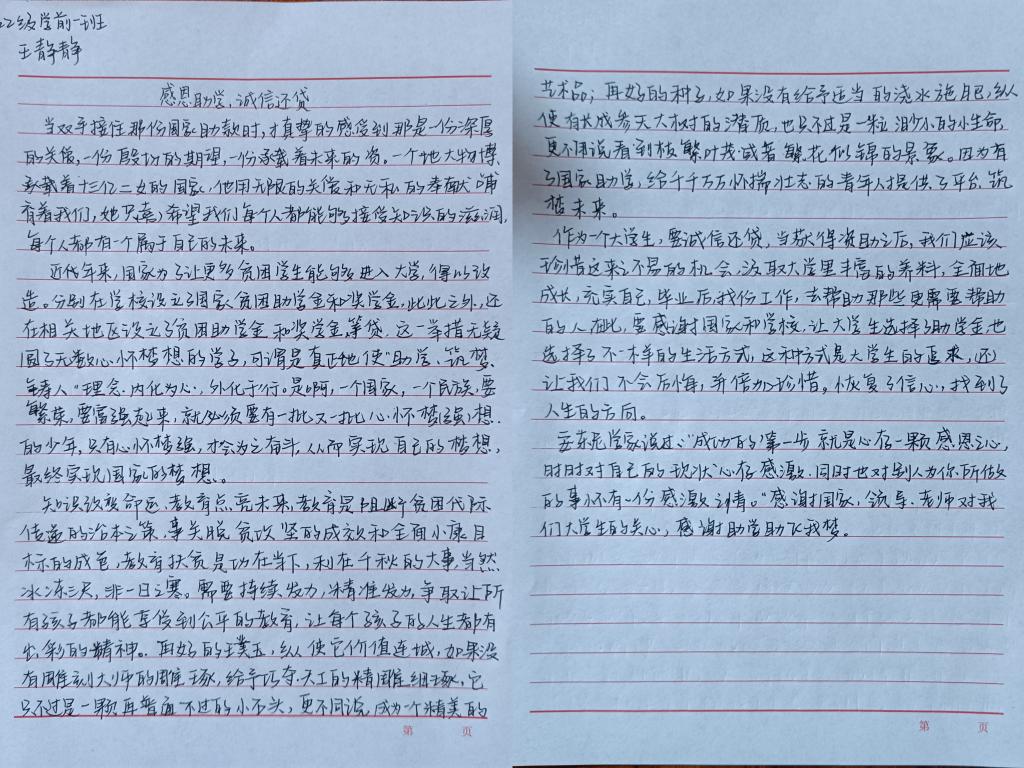 22级学前一班
王静静
感恩助学,诚信还贷
当双手接住那份国家助款时,才真挚的感受到那是一份深厚
的关偿,一份殷切的期望,一份承载着未来的资。一个地大物博
承载着十三亿二女的国家,他用无限的关偿和无私的奉献哺
育着我们,她只希望我们每个人都能够接受知识的滋润,
每个人都有一个属于自己的未来。
近代年来,国家为了让更多贫困学生能够进入大学,得以改
造。分别在学校设立了国家贫困助学金和奖学金,此此之外,还
在相关地区设立了贫困助学金和奖学金,等贷.这一举措无疑
圆了无数心怀梦想的学子,可谓是真正地使"助学、筑梦、
铸人"理念,内化为心,外化于行。是啊,一个国家,一个民族,要
繁荣,要富强起来,就必须要有一批又一批心怀梦强,想.
的少年,只有心怀梦强,才会为之奋斗,从而实现自己的梦想,
最终实现国家的梦想.
知识改变命运,教育点亮未来,教育是阻断贫困代际
传递的治本之策,事关脱贫攻坚的成效和全面小康目
标的成色,教育扶贫是功在当下,利在千秋的大事,当然
冰冻三尺,非一日之寒。需要持续发力,精准发力,争取让所
有孩子都能享受到公平的教育,让每个孩子的人生都有
出彩的精神。再好的璞玉,纵使它价值连城,如果没
有雕刻大师的雕琢,给予巧夺天工的精雕细琢,它
只不过是一颗再普通不过的小石头,更不同说,成为一个精美的
艺术品;再好的种子,如果没有给予适当的浇水施肥,纵
使有长成参天大树的潜质,也只不过是一粒渺小的小生命,
更不用说看到枝繁叶茂,或者繁花似锦的景象。因为有
了国家助学,给千千万万怀揣壮志的青年人提供了平台,筑
梦未来。
作为一个大学生,要诚信还贷,当获得资助之后,我们应该
珍惜这来之不易的机会,汲取大学里丰富的养料,全面地
成长,充实自己,毕业后,找份工作,去帮助那些更需要帮助
的人,在此,要感谢国家和学校.让大学生选择了助学金,也
选择了不一样的生活方式,这种方式是大学生的追求,还
让我们不会后悔,并倍加珍惜。恢复了信心,找到了
人生的方向。
安东尼学家说过:"成功的第一步就是心存一颗感恩之心,
时时对自己的现状心存感激.同时也对别人为你所做
的事怀有一份感激之情。"感谢国家,领导、老师对我
们大学生的关心,感谢助学助飞我梦。
第 页
第 页